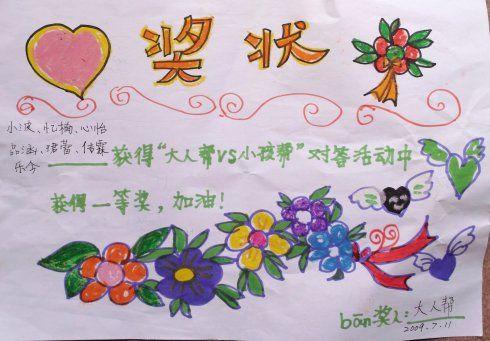 奖状
小波、忆楠、心怡
品涵、珺萱、佳霖
乐今
获得“大人帮VS小孩帮”对答活动中
获得一等奖，加油！
bān奖人：大人帮
2009.7.11